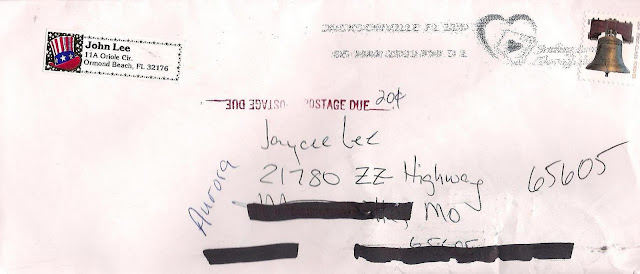 John Lee
11A Oriole Cir.
Ormond Beach, FL 32176
JACKSONVILLE FL 322
POSTAGE DUE POSTAGE DUE 20¢
Jaycee Lee
21780 ZZ Highway 65605
Mo
Aurora
65605